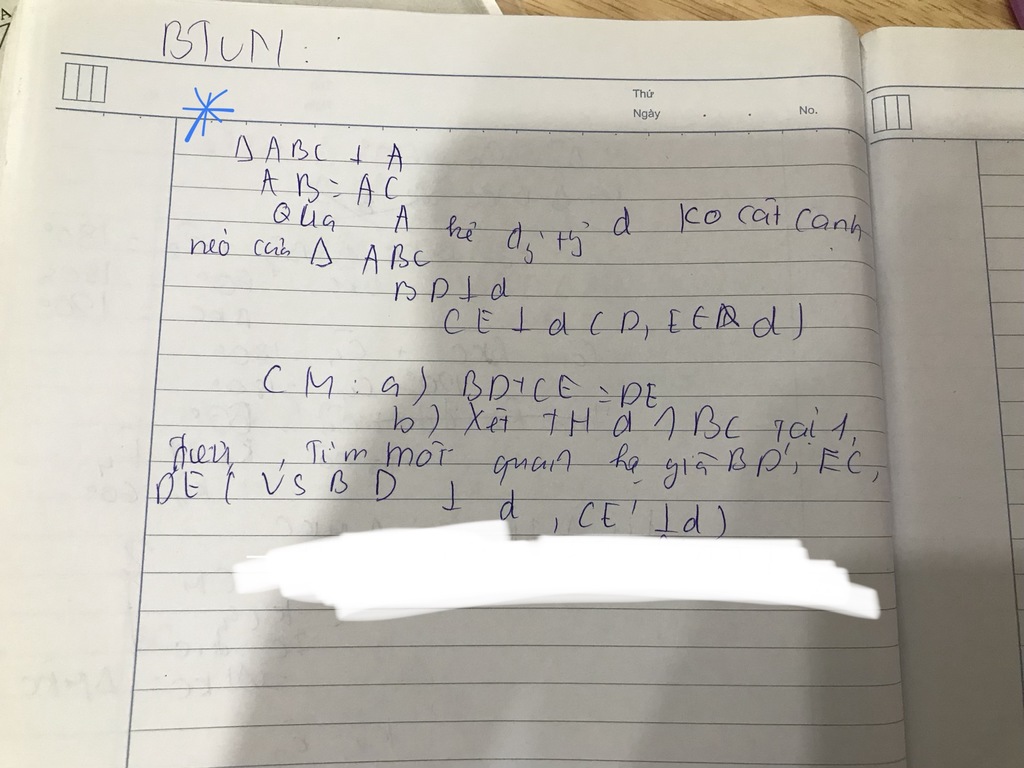 BTVN:
Thứ
Ngày . . No.
Δ ABC ⊥ A
AB = AC
Qua A kẻ đg t' d ko cắt cạnh
của Δ ABC
BD ⊥ d
CE ⊥ d (D, E ∈ d)
CM: a) BD + CE = DE
b) Xét TH d ∩ BC tại 1,
, Tìm mối quan hạ giữa BD', EC,
DE ( VS BD ⊥ d , CE' ⊥ d)